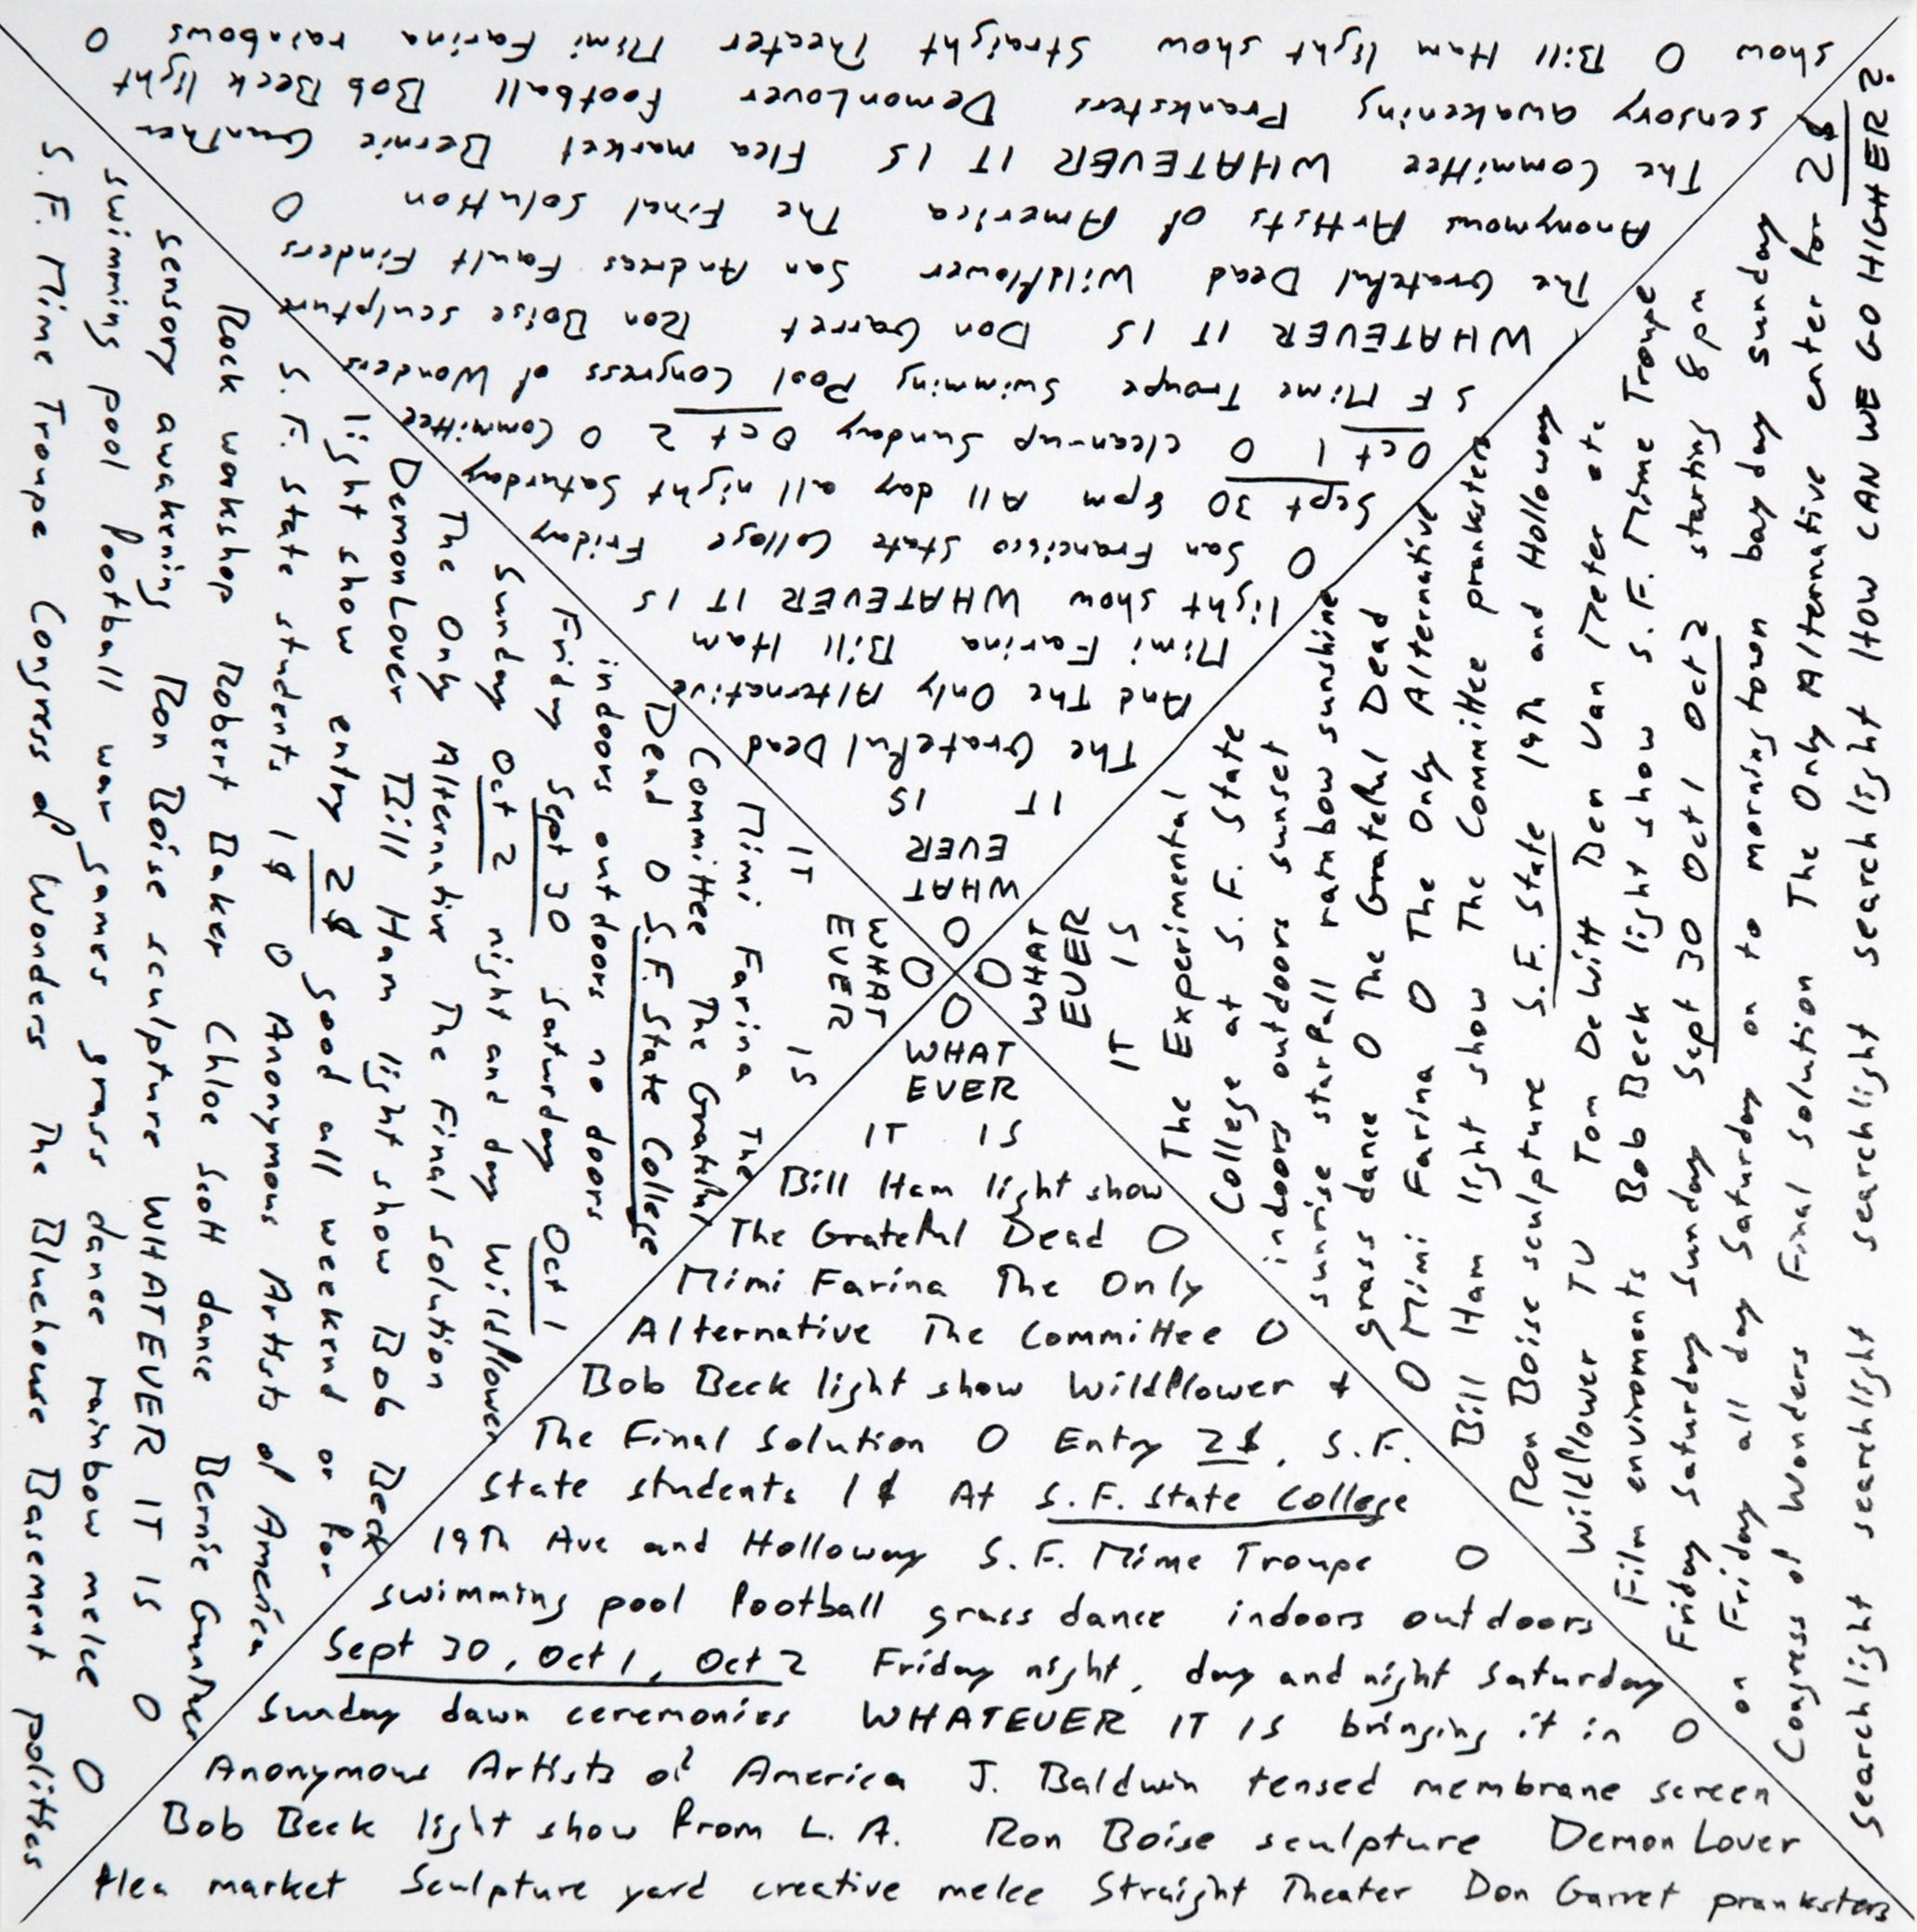 O
WHAT
EVER
IT IS
Bill Ham light show
The Grateful Dead O
Mimi Farina The Only
Alternative The Committee O
Bob Beck light show Wildflower +
The Final Solution O Entry 2$, S.F.
State students 1$ At S.F. State College
19th Ave and Holloway S.F. Mime Troupe O
swimming pool football grass dance indoors outdoors
Sept 30, Oct 1, Oct 2 Friday night, day and night Saturday
Sunday dawn ceremonies WHATEVER IT IS bringing it in O
Anonymous Artists of America J. Baldwin tensed membrane screen
Bob Beck light show from L.A. Ron Boise sculpture Demon Lover
flea market Sculpture yard creative melee Straight Theater Don Garret pranksters
O
WHAT
EVER
IT IS
Mimi Farina The
Committee The Grateful
Dead O S.F. State College
indoors outdoors no doors
Friday Sept 30 Saturday Oct 1
Sunday Oct 2 night and day Wildflower
The Only Alternative The Final Solution
DemonLover Bill Ham light show Bob Beck
light show entry 2$ good all weekend or for
S.F. State students 1$ O Anonymous Artists of America
Rock workshop Robert Baker Chloe Scott dance Bernie Gunther
sensory awakening Ron Boise sculpture WHATEVER IT IS O
swimming pool football war games grass dance rainbow melee O
S.F. Mime Troupe Congress of Wonders The Bluehouse Basement politics
O
WHAT
EVER
IT IS
The Grateful Dead
And The Only Alternative
Mimi Farina Bill Ham
light show WHATEVER IT IS
O San Francisco State College Friday
Sept 30 8pm All day all night Saturday
Oct 1 O cleanup Sunday Oct 2 O Committee
S F Mime Troupe Swimming Pool Congress of Wonders
WHATEVER IT IS Don Garret Ron Boise sculpture
The Grateful Dead Wildflower San Andreas Fault Finders
Anonymous Artists of America The Final Solution O
The Committee WHATEVER IT IS Flea market Bernie Gunther
sensory awakening Pranksters DemonLover Football Bob Beck light
show O Bill Ham light show Straight Theater Mimi Farina rainbows O
O
WHAT
EVER
IT IS
The Experimental
College at S.F. State
indoors outdoors sunset
sunrise starfall rainbow sunshine
grass dance O The Grateful Dead
O Mimi Farina O The Only Alternative
Bill Ham light show The Committee pranksters
Ron Boise sculpture S.F. State 19th and Holloway
Wildflower TV Tom DeWitt Ben Van Meter etc
Film environments Bob Beck light show S.F. Mime Troupe
Friday Saturday Sunday Sept 30 Oct 1 Oct 2 starting 8pm
on Friday all day Saturday on to morningtown bay day sunday
Congress of Wonders Final Solution The Only Alternative enter for 2$
searchlight searchlight searchlight searchlight searchlight HOW CAN WE GO HIGHER?